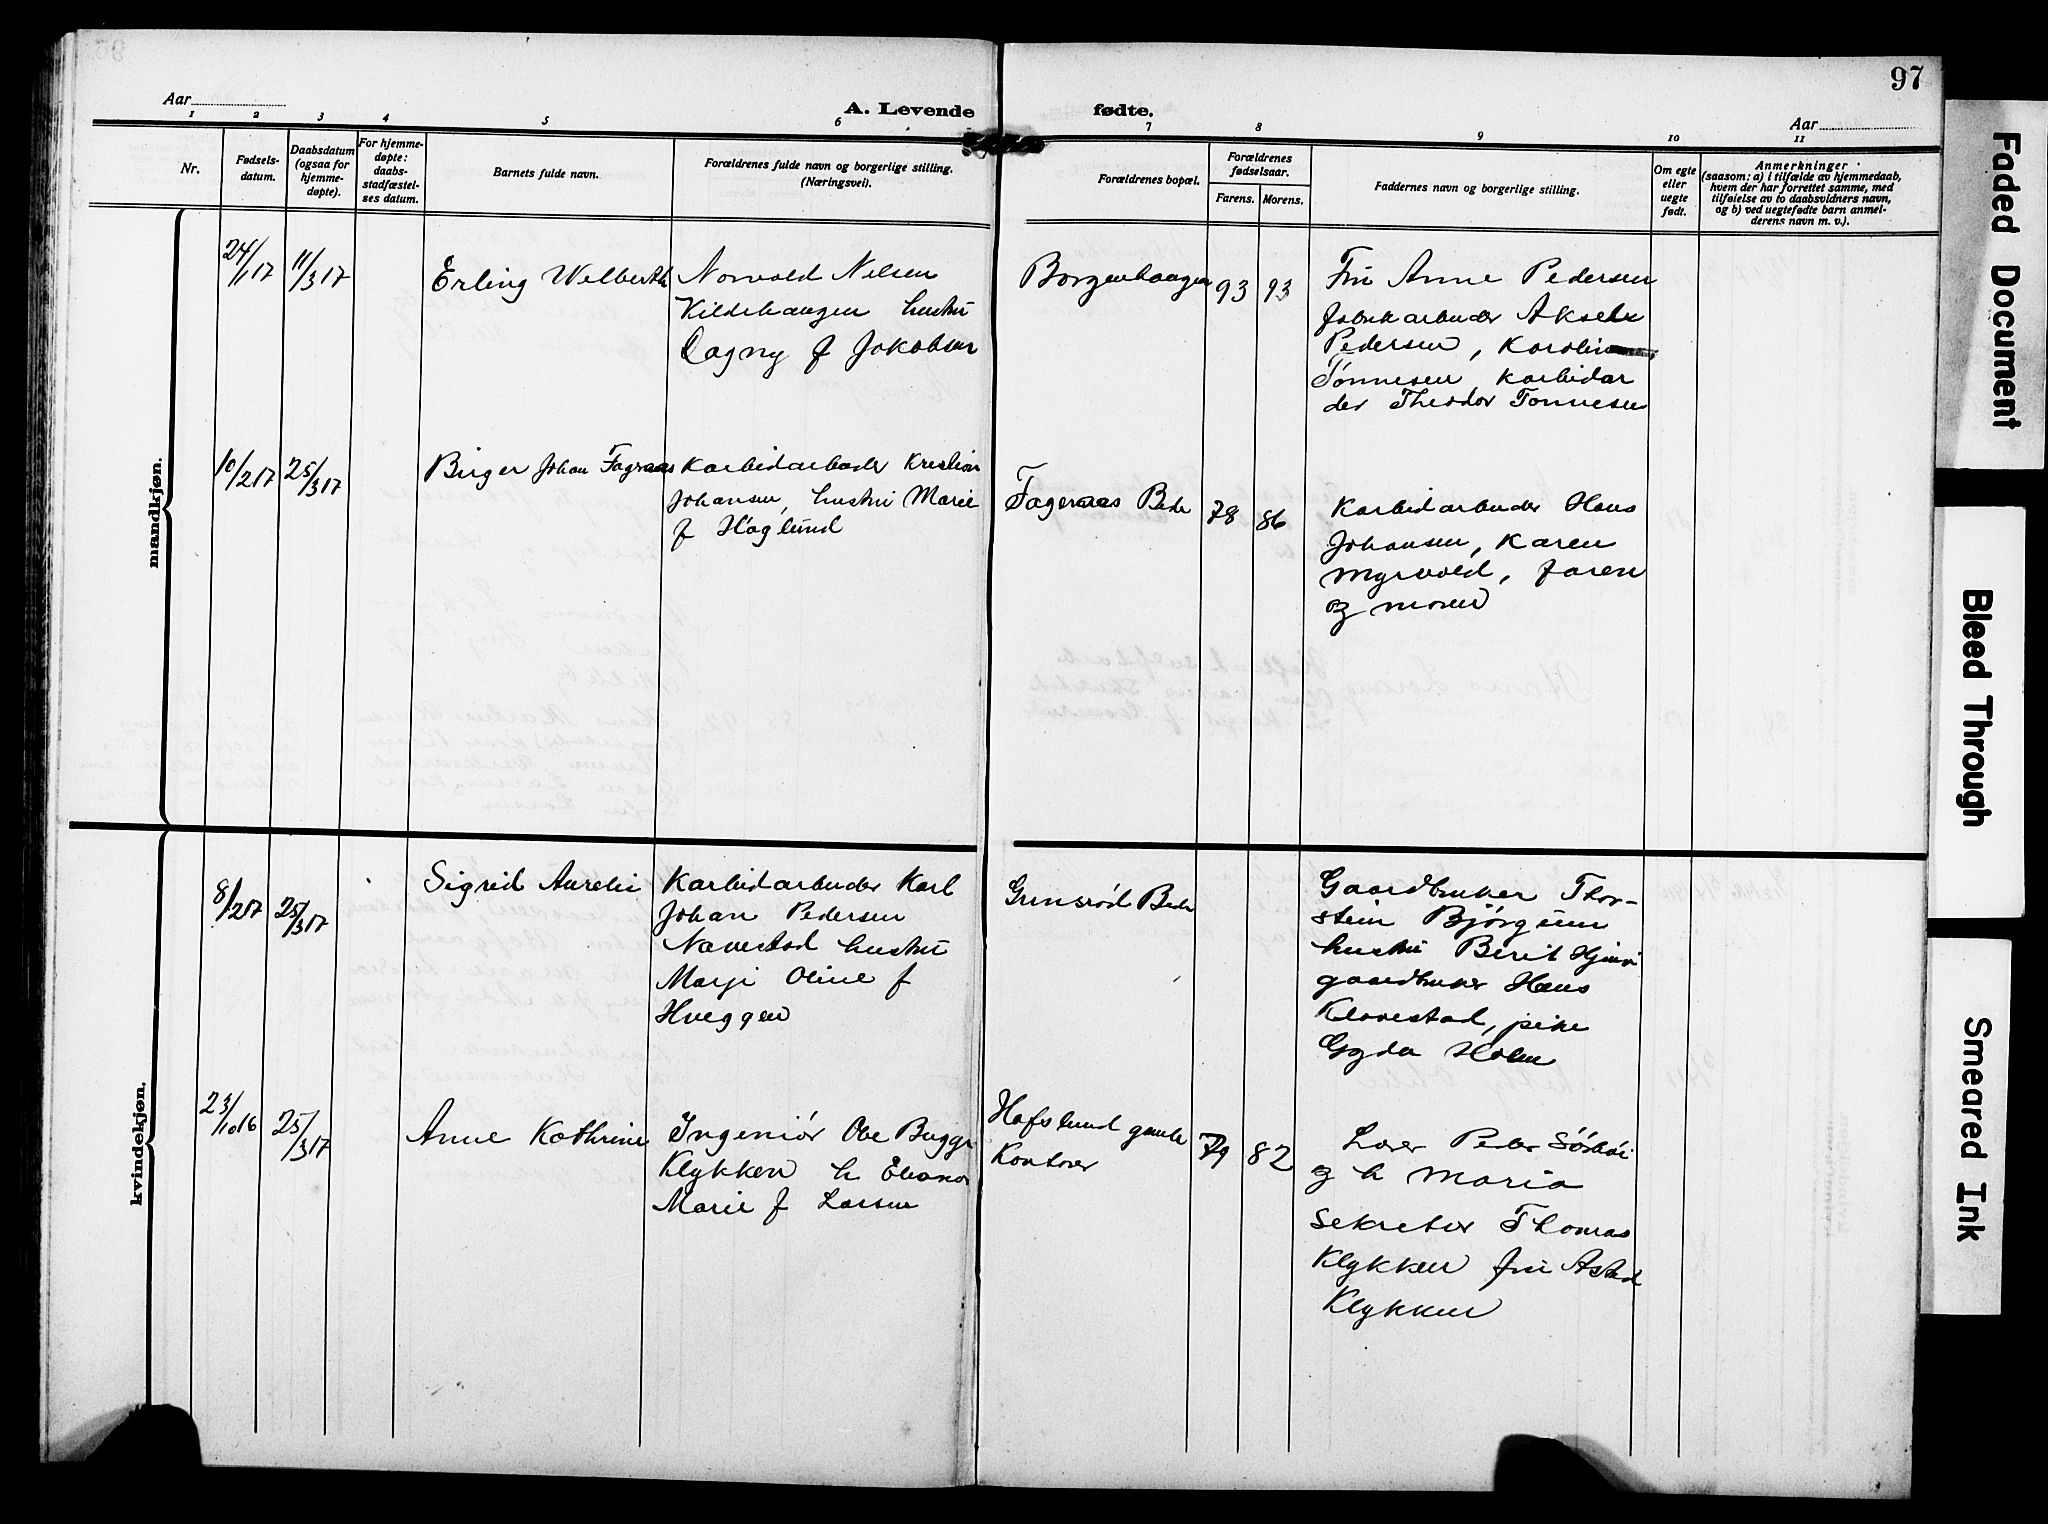 97
Aar
A. Levende fødte.
Aar
1 2 3 4 5 6 7 8 9 10 11
Nr.
Fødsels-
datum.
Daabsdatum
(ogsaa for
hjemme-
døpte).
For hjemme-
døpte:
daabs-
stadfæstel-
ses datum.
Barnets fulde navn.
Forældrenes fulde navn og borgerlige stilling.
(Næringsvei).
Forældrenes bopæl.
Forældrenes
fødselsaar.
Farens. Morens.
Faddernes navn og borgerlige stilling.
Om egte
eller
uegte
født.
Anmerkninger
(saasom: a) i tilfælde av hjemmedaab,
hvem der har forrettet samme, med
tilføielse av to daabsvidners navn,
og b) ved uegtefødte barn anmel-
derens navn m. v.).
mandkjøn.
24/1 17
11/3 17
Erling Welberth
Norvald Nilsen
Kildehaugen hustru
Dagny f Jakobsen
Borgenhaugen
93
93
Fru Anne Pedersen
Fabrikarbeider Aksel
Pedersen, Karoline
Tønnesen, Karbidar
der Theodor Tønnesen
10/2 17
25/3 17
Birger Johan Fagernæs
Karbidarbeider Kristian
Johansen, hustru Marie
f Høglund
Fagernæs Bede
78
86
Karbidarbeider Hans
Johansen, Karen
Myrvold, faren
og moren
kvindekjøn.
8/2 17
25/3 17
Sigrid Aurelie
Karbidarbeider Karl
Johan Pedersen
Navestad hustru
Marji Oline f
Hveggen
Grinsrød Bede
Gaardbruker Thor-
stein Bjørgum
hustru Berit
gaardbruker Hans
Klavestad, pike
Gyda Holm
23/10 16
25/3 17
Anne Kathrine
Ingeniør Ole Bugge
Klykken h Eleanor
Marie f Larsen
Hafslund gamle
Kontor
79
82
Lærer Peder
og h Maria
Sekretær Thomas
Klykken fru Astrid
Klykken
Faded Document
Bleed Through
Smeared Ink